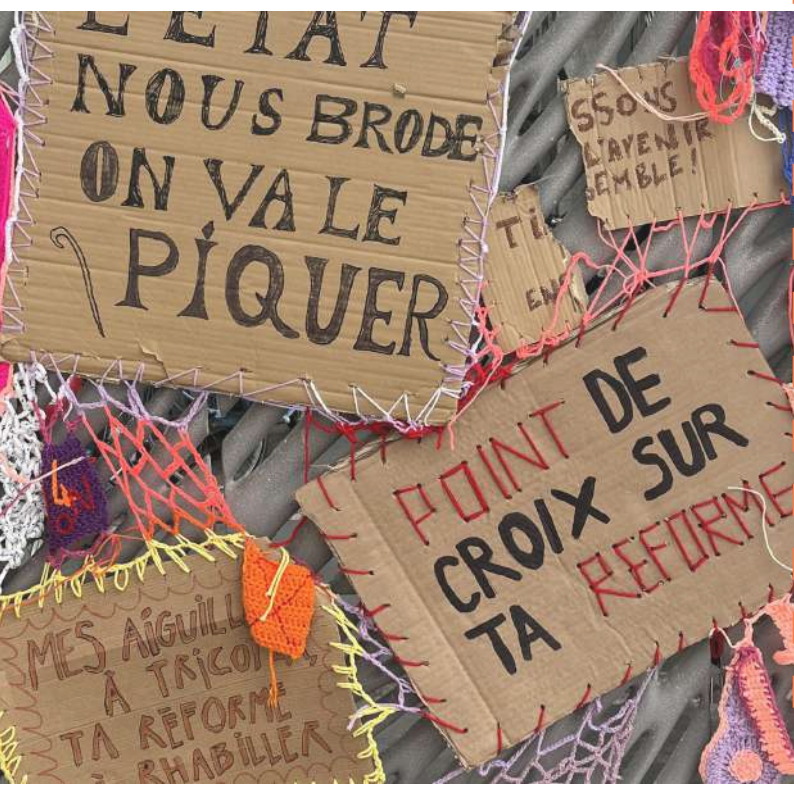 L'ÉTAT
NOUS BRODE
ON VA LE
PIQUER
SSOUS
L'AVENIR
EMBLE!
Ti
EN
POINT DE
CROIX SUR
TA REFORME
MES AiGUiLL
À TRiCO
TA RÉFORME
RHABiLLER